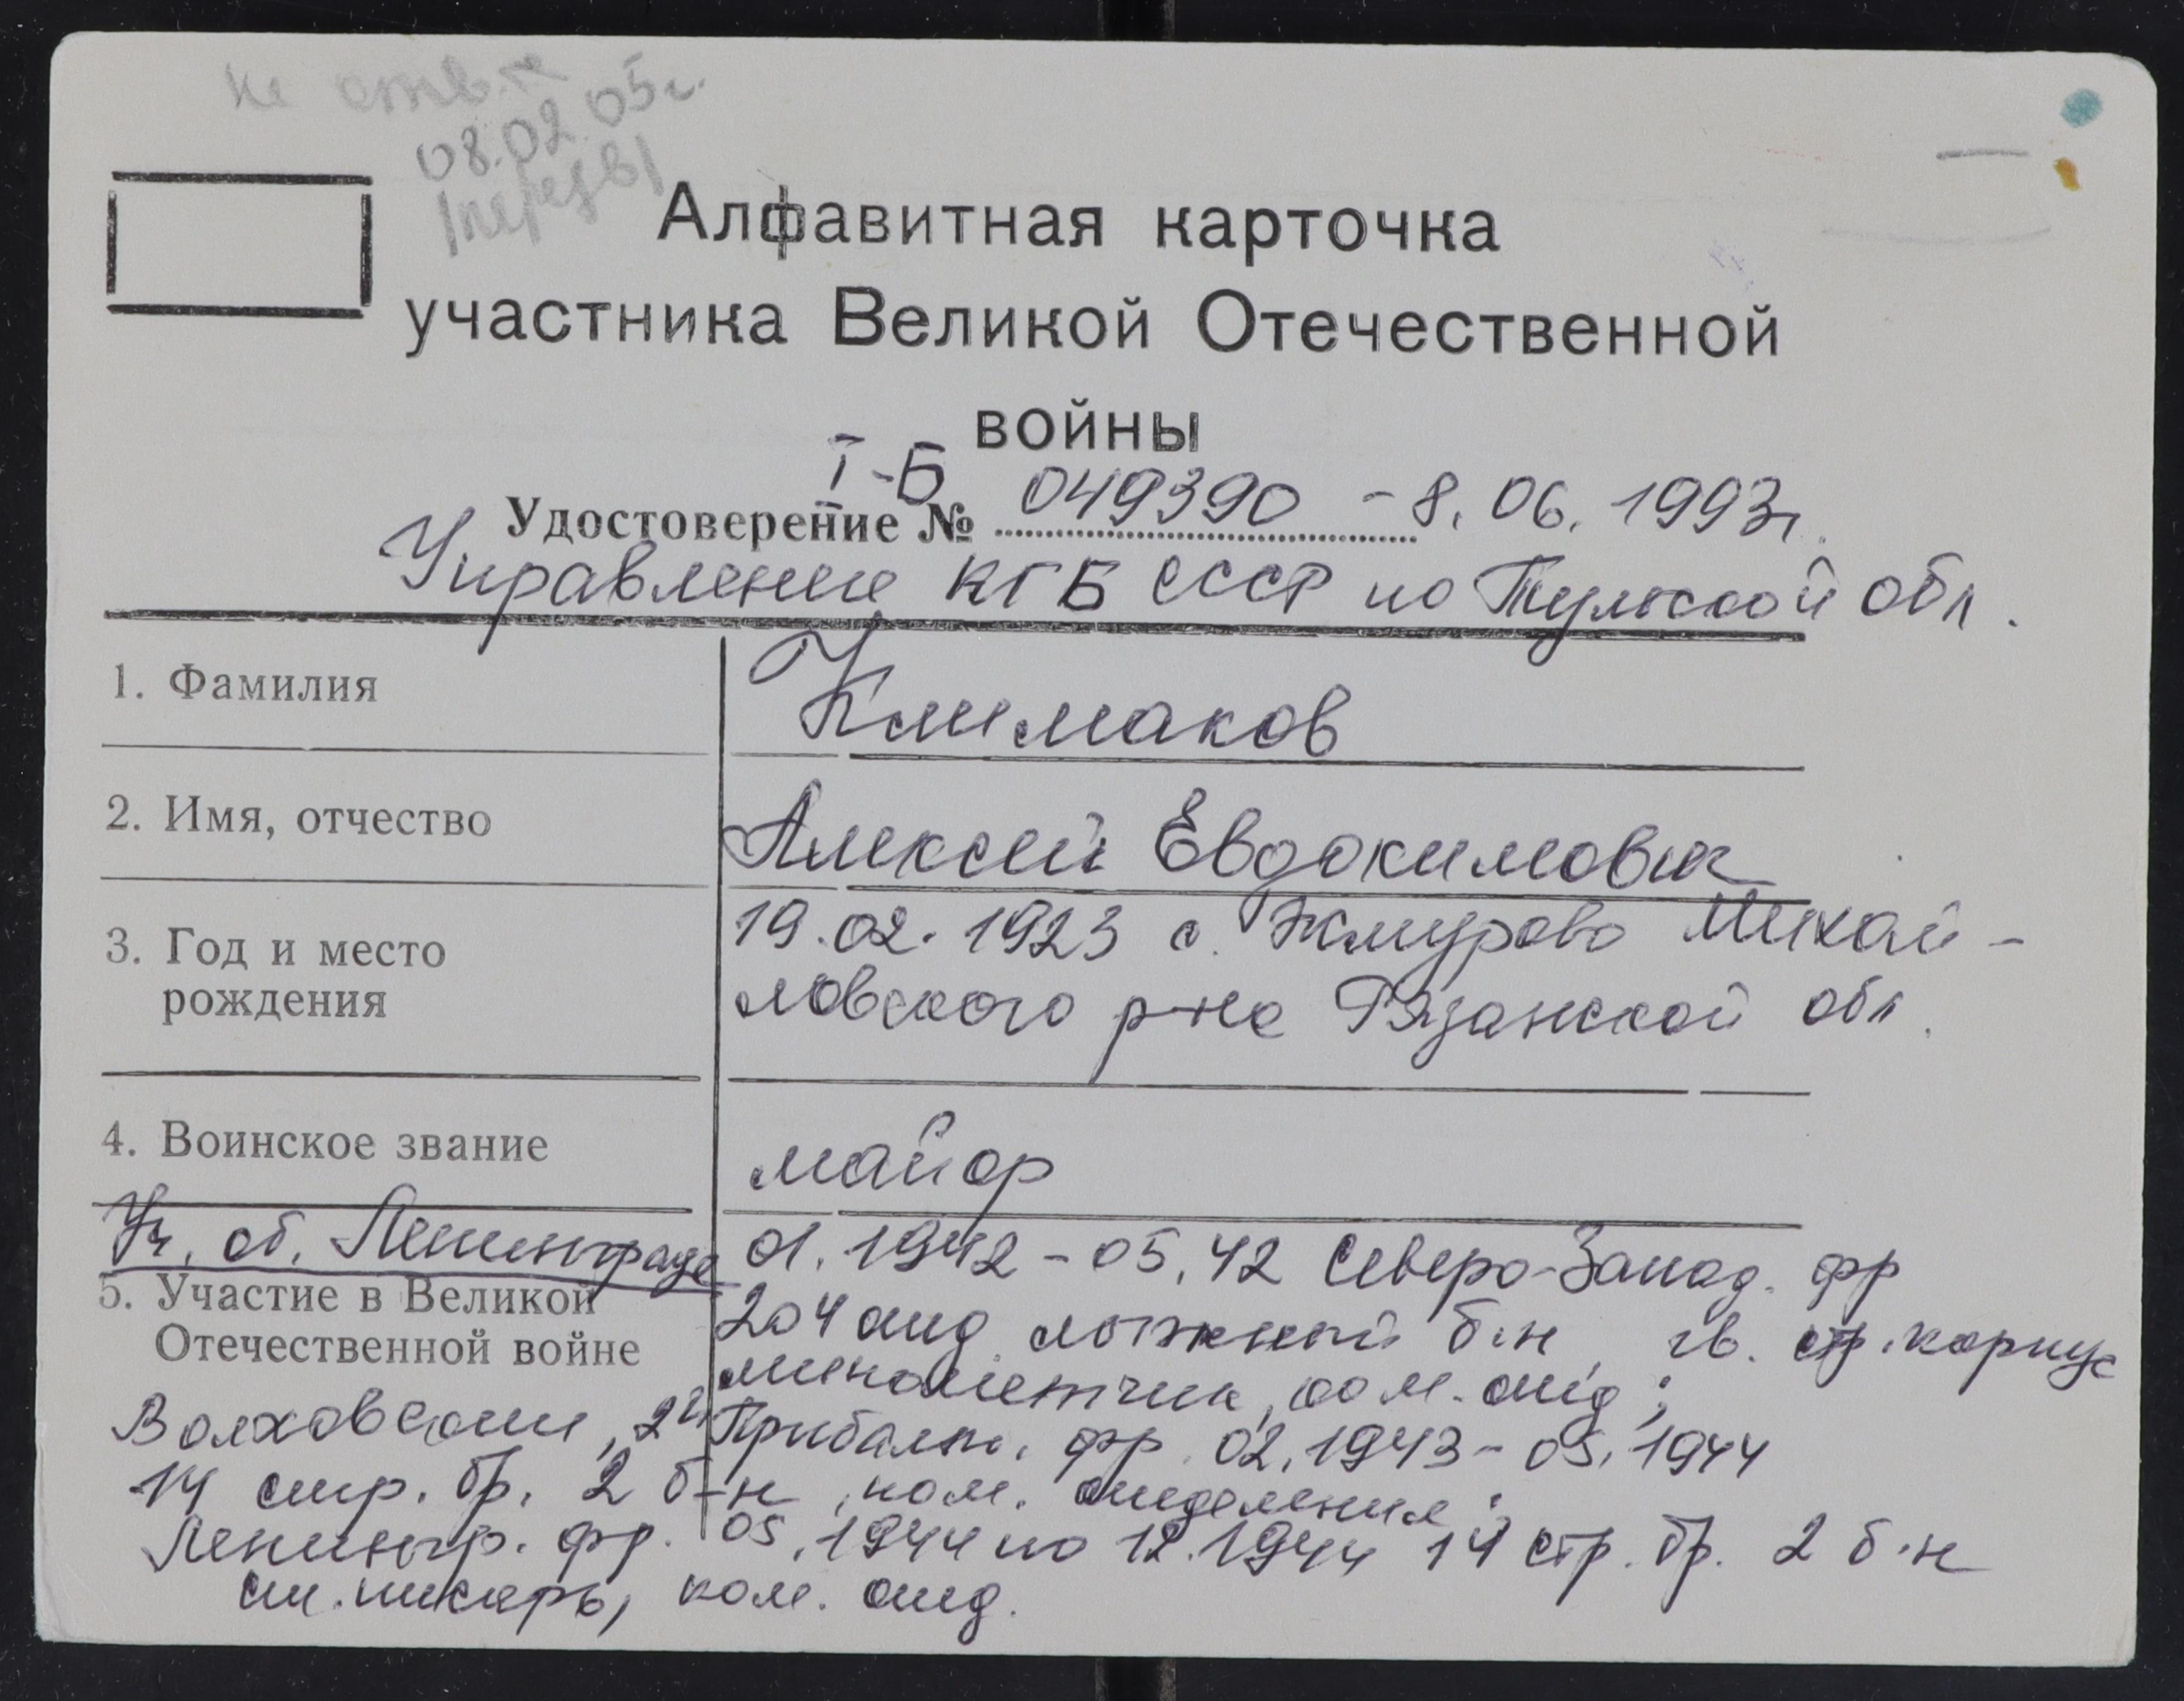 08.02.05г.
Алфавитная карточка
участника Великой Отечественной
войны
I-Б
Удостоверение № 049390 - 8.06.1993г.
Управление КГБ СССР по Тульской обл.
1. Фамилия Климаков
2. Имя, отчество Алексей Евдокимович
3. Год и место рождения 19.02.1923 с. Жмурово Михай-
ловского р-на Рязанской обл.
4. Воинское звание майор
Уч. об. Ленинграда 01.1942 - 05.42 Северо-Запад. фр
5. Участие в Великой 204 отд лыжный б-н, гв. стр. корпус
Отечественной войне минометчик, ком. отд;
Волховский, 2й Прибалт. фр. 02.1943 - 05.1944
14 стр. бр. 2 б-н, ком. отделения;
Ленингр. фр. 05.1944 по 12.1944 14 стр. бр. 2 б-н
ст. писарь, ком. отд.